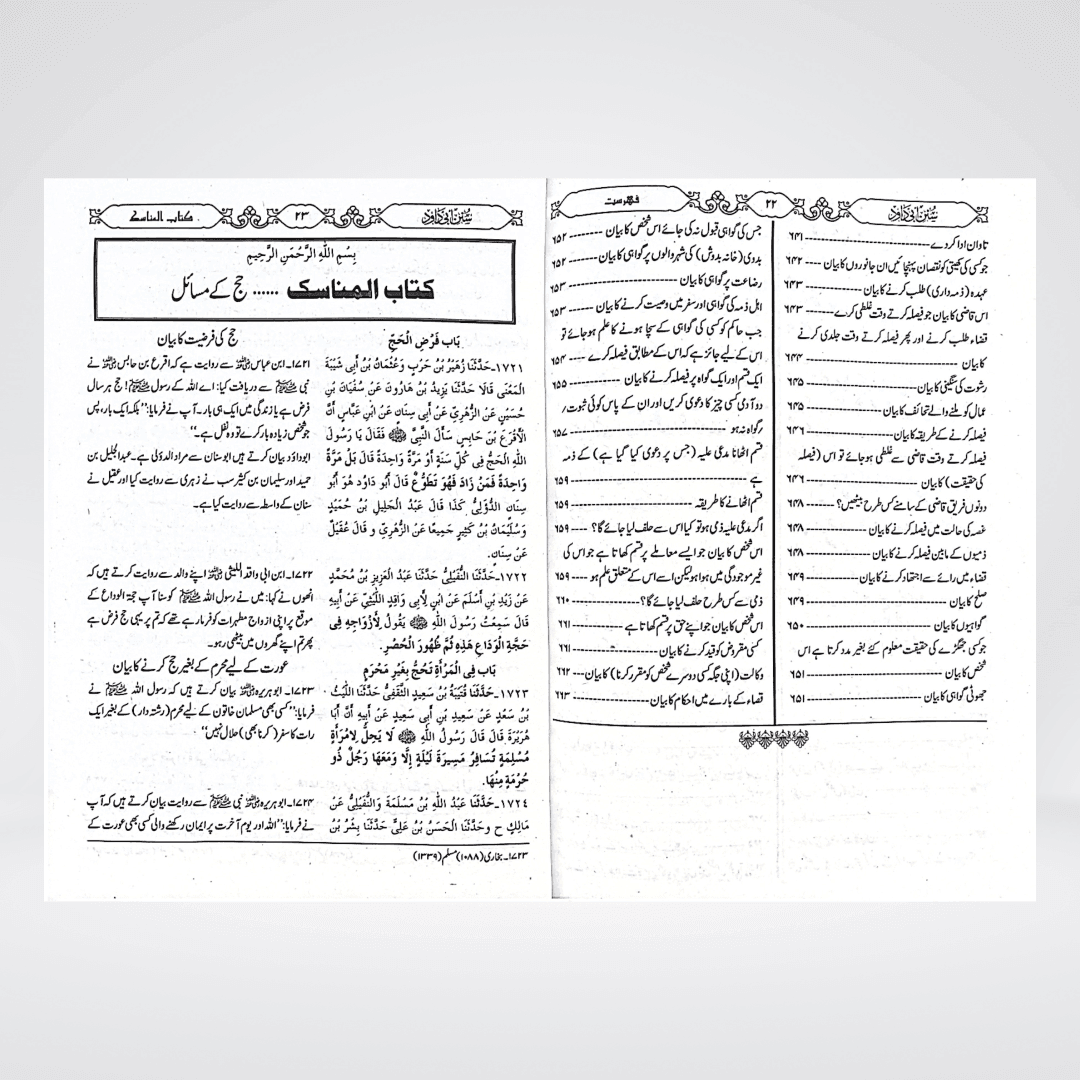 سنن ابی داود
۲۲
فہرست
تاوان ادا کر دے ---------- ۶۴۱
جو کسی کی کھیتی کو نقصان پہنچائیں ان جانوروں کا بیان ---- ۶۴۲
عہدہ (ذمہ داری) طلب کرنے کا بیان ---------- ۶۴۳
اس قاضی کا بیان جو فیصلہ کرتے وقت غلطی کرے ---- ۶۴۳
قضاء طلب کرنے اور پھر فیصلہ کرتے وقت جلدی کرنے
کا بیان ---------- ۶۴۴
رشوت کی سنگینی کا بیان ---------- ۶۴۵
عمال کو ملنے والے تحائف کا بیان ---------- ۶۴۵
فیصلہ کرنے کے طریقہ کا بیان ---------- ۶۴۶
فیصلہ کرتے وقت قاضی سے غلطی ہو جائے تو اس (فیصلہ
کی حقیقت) کا بیان ---------- ۶۴۶
دونوں فریق قاضی کے سامنے کس طرح بیٹھیں؟ ------ ۶۴۸
غصہ کی حالت میں فیصلہ کرنے کا بیان ---------- ۶۴۸
ذمیوں کے مابین فیصلہ کرنے کا بیان ---------- ۶۴۸
قضاء میں رائے سے اجتہاد کرنے کا بیان ---------- ۶۴۹
صلح کا بیان ---------- ۶۴۹
گواہیوں کا بیان ---------- ۶۵۰
جو کسی جھگڑے کی حقیقت معلوم کئے بغیر مدد کرتا ہے اس
شخص کا بیان ---------- ۶۵۱
جھوٹی گواہی کا بیان ---------- ۶۵۱
جس کی گواہی قبول نہ کی جائے اس شخص کا بیان ------ ۶۵۲
بدوی (خانہ بدوش) کی شہر والوں پر گواہی کا بیان ------ ۶۵۲
رضاعت پر گواہی کا بیان ---------- ۶۵۳
اہل ذمہ کی گواہی اور سفر میں وصیت کرنے کا بیان ---- ۶۵۳
جب حاکم کو کسی کی گواہی کے سچا ہونے کا علم ہو جائے تو
اس کے لیے جائز ہے کہ اس کے مطابق فیصلہ کرے ---- ۶۵۴
ایک قسم اور ایک گواہ پر فیصلہ کرنے کا بیان ------ ۶۵۵
دو آدمی کسی چیز کا دعوی کریں اور ان کے پاس کوئی ثبوت ر
رگواہ نہ ہو ---------- ۶۵۷
قسم اٹھانا مدعی علیہ (جس پر دعوی کیا گیا ہے) کے ذمہ
ہے ---------- ۶۵۹
قسم اٹھانے کا طریقہ ---------- ۶۵۹
اگر مدعی علیہ ذمی ہو تو کیا اس سے حلف لیا جائے گا؟ ---- ۶۵۹
اس شخص کا بیان جو ایسے معاملے پر قسم کھاتا ہے جو اس کی
غیر موجودگی میں ہوا ہو لیکن اسے اس کے متعلق علم ہو ---- ۶۵۹
ذمی سے کس طرح حلف لیا جائے گا؟ ---------- ۶۶۰
اس شخص کا بیان جو اپنے حق پر قسم کھاتا ہے ------ ۶۶۱
کسی مقروض کو قید کرنے کا بیان ---------- ۶۶۱
وکالت (اپنی جگہ کسی دوسرے شخص کو مقرر کرنا) کا بیان --- ۶۶۲
قضاء کے بارے میں احکام کا بیان ---------- ۶۶۳
سنن ابی داود
۲۳
کتاب المناسک
بِسْمِ اللّٰهِ الرَّحْمٰنِ الرَّحِيْمِ
کتاب المناسک ...... حج کے مسائل
بَاب فَرْضِ الْحَجِّ
١٧٢١۔حَدَّثَنَا زُهَيْرُ بْنُ حَرْبٍ وَعُثْمَانُ بْنُ أَبِي شَيْبَةَ
الْمَعْنَى قَالَا حَدَّثَنَا يَزِيدُ بْنُ هَارُونَ عَنْ سُفْيَانَ بْنِ
حُسَيْنٍ عَنْ الزُّهْرِيِّ عَنْ أَبِي سِنَانٍ عَنْ ابْنِ عَبَّاسٍ أَنَّ
الْأَقْرَعَ بْنَ حَابِسٍ سَأَلَ النَّبِيَّ ﷺ فَقَالَ يَا رَسُولَ
اللّٰهِ الْحَجُّ فِي كُلِّ سَنَةٍ أَوْ مَرَّةً وَاحِدَةً قَالَ بَلْ مَرَّةً
وَاحِدَةً فَمَنْ زَادَ فَهُوَ تَطَوُّعٌ قَالَ أَبُو دَاوُد هُوَ أَبُو
سِنَانٍ الدُّؤَلِيُّ كَذَا قَالَ عَبْدُ الْجَلِيلِ بْنُ حُمَيْدٍ
وَسُلَيْمَانُ بْنُ كَثِيرٍ جَمِيعًا عَنْ الزُّهْرِيِّ و قَالَ عُقَيْلٌ
عَنْ سِنَانٍ.
١٧٢٢۔حَدَّثَنَا النُّفَيْلِيُّ حَدَّثَنَا عَبْدُ الْعَزِيزِ بْنُ مُحَمَّدٍ
عَنْ زَيْدِ بْنِ أَسْلَمَ عَنْ ابْنٍ لِأَبِي وَاقِدٍ اللَّيْثِيِّ عَنْ أَبِيهِ
قَالَ سَمِعْتُ رَسُولَ اللّٰهِ ﷺ يَقُولُ لِأَزْوَاجِهِ فِي
حَجَّةِ الْوَدَاعِ هَذِهِ ثُمَّ ظُهُورَ الْحُصُرِ.
بَاب فِي الْمَرْأَةِ تَحُجُّ بِغَيْرِ مَحْرَمٍ
١٧٢٣۔حَدَّثَنَا قُتَيْبَةُ بْنُ سَعِيدٍ الثَّقَفِيُّ حَدَّثَنَا اللَّيْثُ
بْنُ سَعْدٍ عَنْ سَعِيدِ بْنِ أَبِي سَعِيدٍ عَنْ أَبِيهِ أَنَّ أَبَا
هُرَيْرَةَ قَالَ قَالَ رَسُولُ اللّٰهِ ﷺ لَا يَحِلُّ لِامْرَأَةٍ
مُسْلِمَةٍ تُسَافِرُ مَسِيرَةَ لَيْلَةٍ إِلَّا وَمَعَهَا رَجُلٌ ذُو
حُرْمَةٍ مِنْهَا.
١٧٢٤۔حَدَّثَنَا عَبْدُ اللّٰهِ بْنُ مَسْلَمَةَ وَالنُّفَيْلِيُّ عَنْ
مَالِكٍ ح و حَدَّثَنَا الْحَسَنُ بْنُ عَلِيٍّ حَدَّثَنَا بِشْرُ بْنُ
حج کی فرضیت کا بیان
۱۷۲۱۔ابن عباس رضی اللہ عنہ سے روایت ہے کہ اقرع بن حابس رضی اللہ عنہ نے
نبی ﷺ سے دریافت کیا: اے اللہ کے رسول ﷺ! حج ہر سال
فرض ہے یا زندگی میں ایک ہی بار۔ آپ نے فرمایا: "بلکہ ایک بار، پس
جو شخص زیادہ بار کرے تو وہ نفل ہے۔"
ابوداؤد بیان کرتے ہیں ابوسنان سے مراد الدؤلی ہے۔ عبدالجلیل بن
حمید اور سلیمان بن کثیر سب نے زہری سے روایت کیا اور عقیل نے
سنان کے واسطہ سے روایت کیا ہے۔
۱۷۲۲۔ابن ابی واقد اللیثی رضی اللہ عنہ اپنے والد سے روایت کرتے ہیں کہ
انھوں نے کہا: میں نے رسول اللہ ﷺ کو سنا آپ حجۃ الوداع کے
موقع پر اپنی ازواج مطہرات کو فرما رہے تھے کہ تم پر یہی حج فرض ہے
پھر تم اپنے گھروں میں بیٹھی رہو۔
عورت کے لیے محرم کے بغیر حج کرنے کا بیان
۱۷۲۳۔ابو ہریرہ رضی اللہ عنہ بیان کرتے ہیں کہ رسول اللہ ﷺ نے
فرمایا: "کسی بھی مسلمان خاتون کے لیے محرم (رشتہ دار) کے بغیر ایک
رات کا سفر (کرنا بھی) حلال نہیں"
۱۷۲۴۔ابو ہریرہ رضی اللہ عنہ نبی ﷺ سے روایت بیان کرتے ہیں کہ آپ
نے فرمایا: "اللہ اور یوم آخرت پر ایمان رکھنے والی کسی بھی عورت کے
۱۷۲۳۔ بخاری (۱۰۸۸) مسلم (۱۳۳۹)